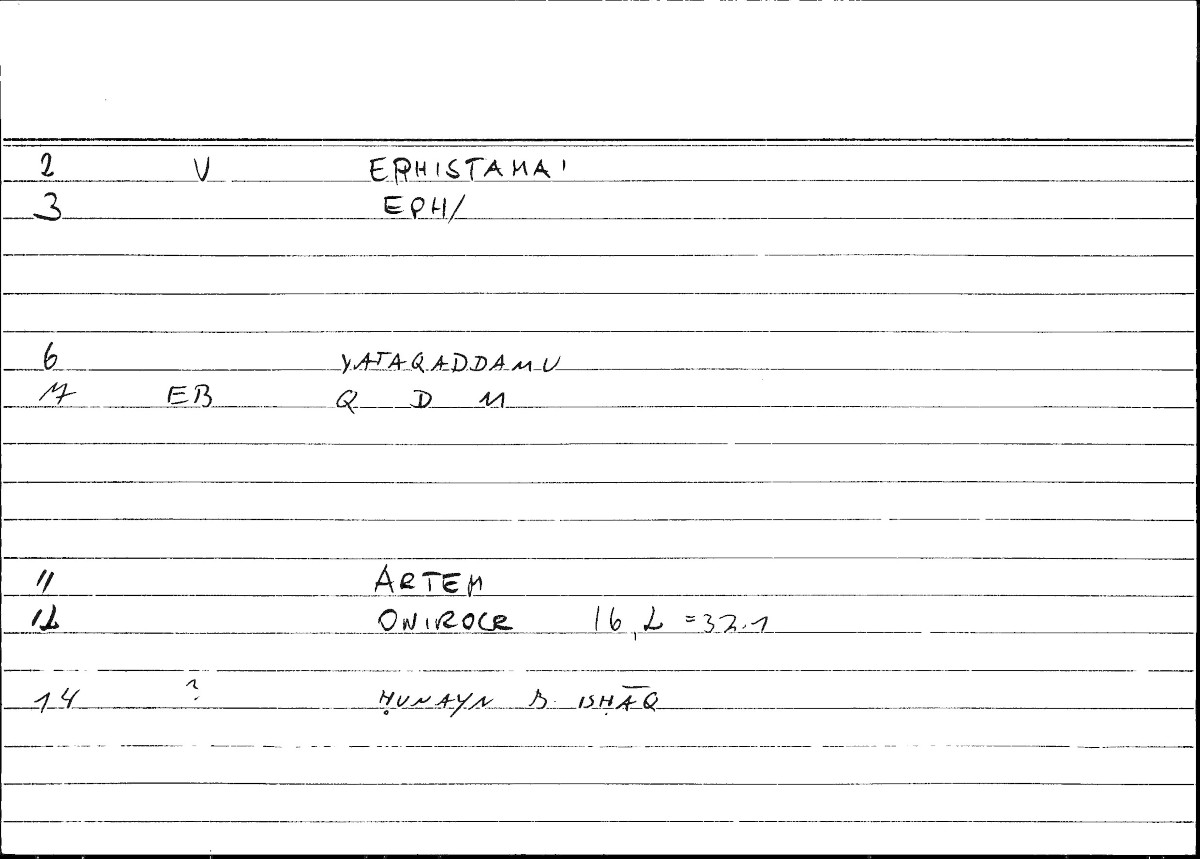 2 V EPHISTAMAI
3 EPH/
6 YATAQADDAMU
7 EB Q D M
11 ARTEM
12 ONIROCR 16,2 = 32.1
14 ? ḤUNAYN B. ISḤĀQ